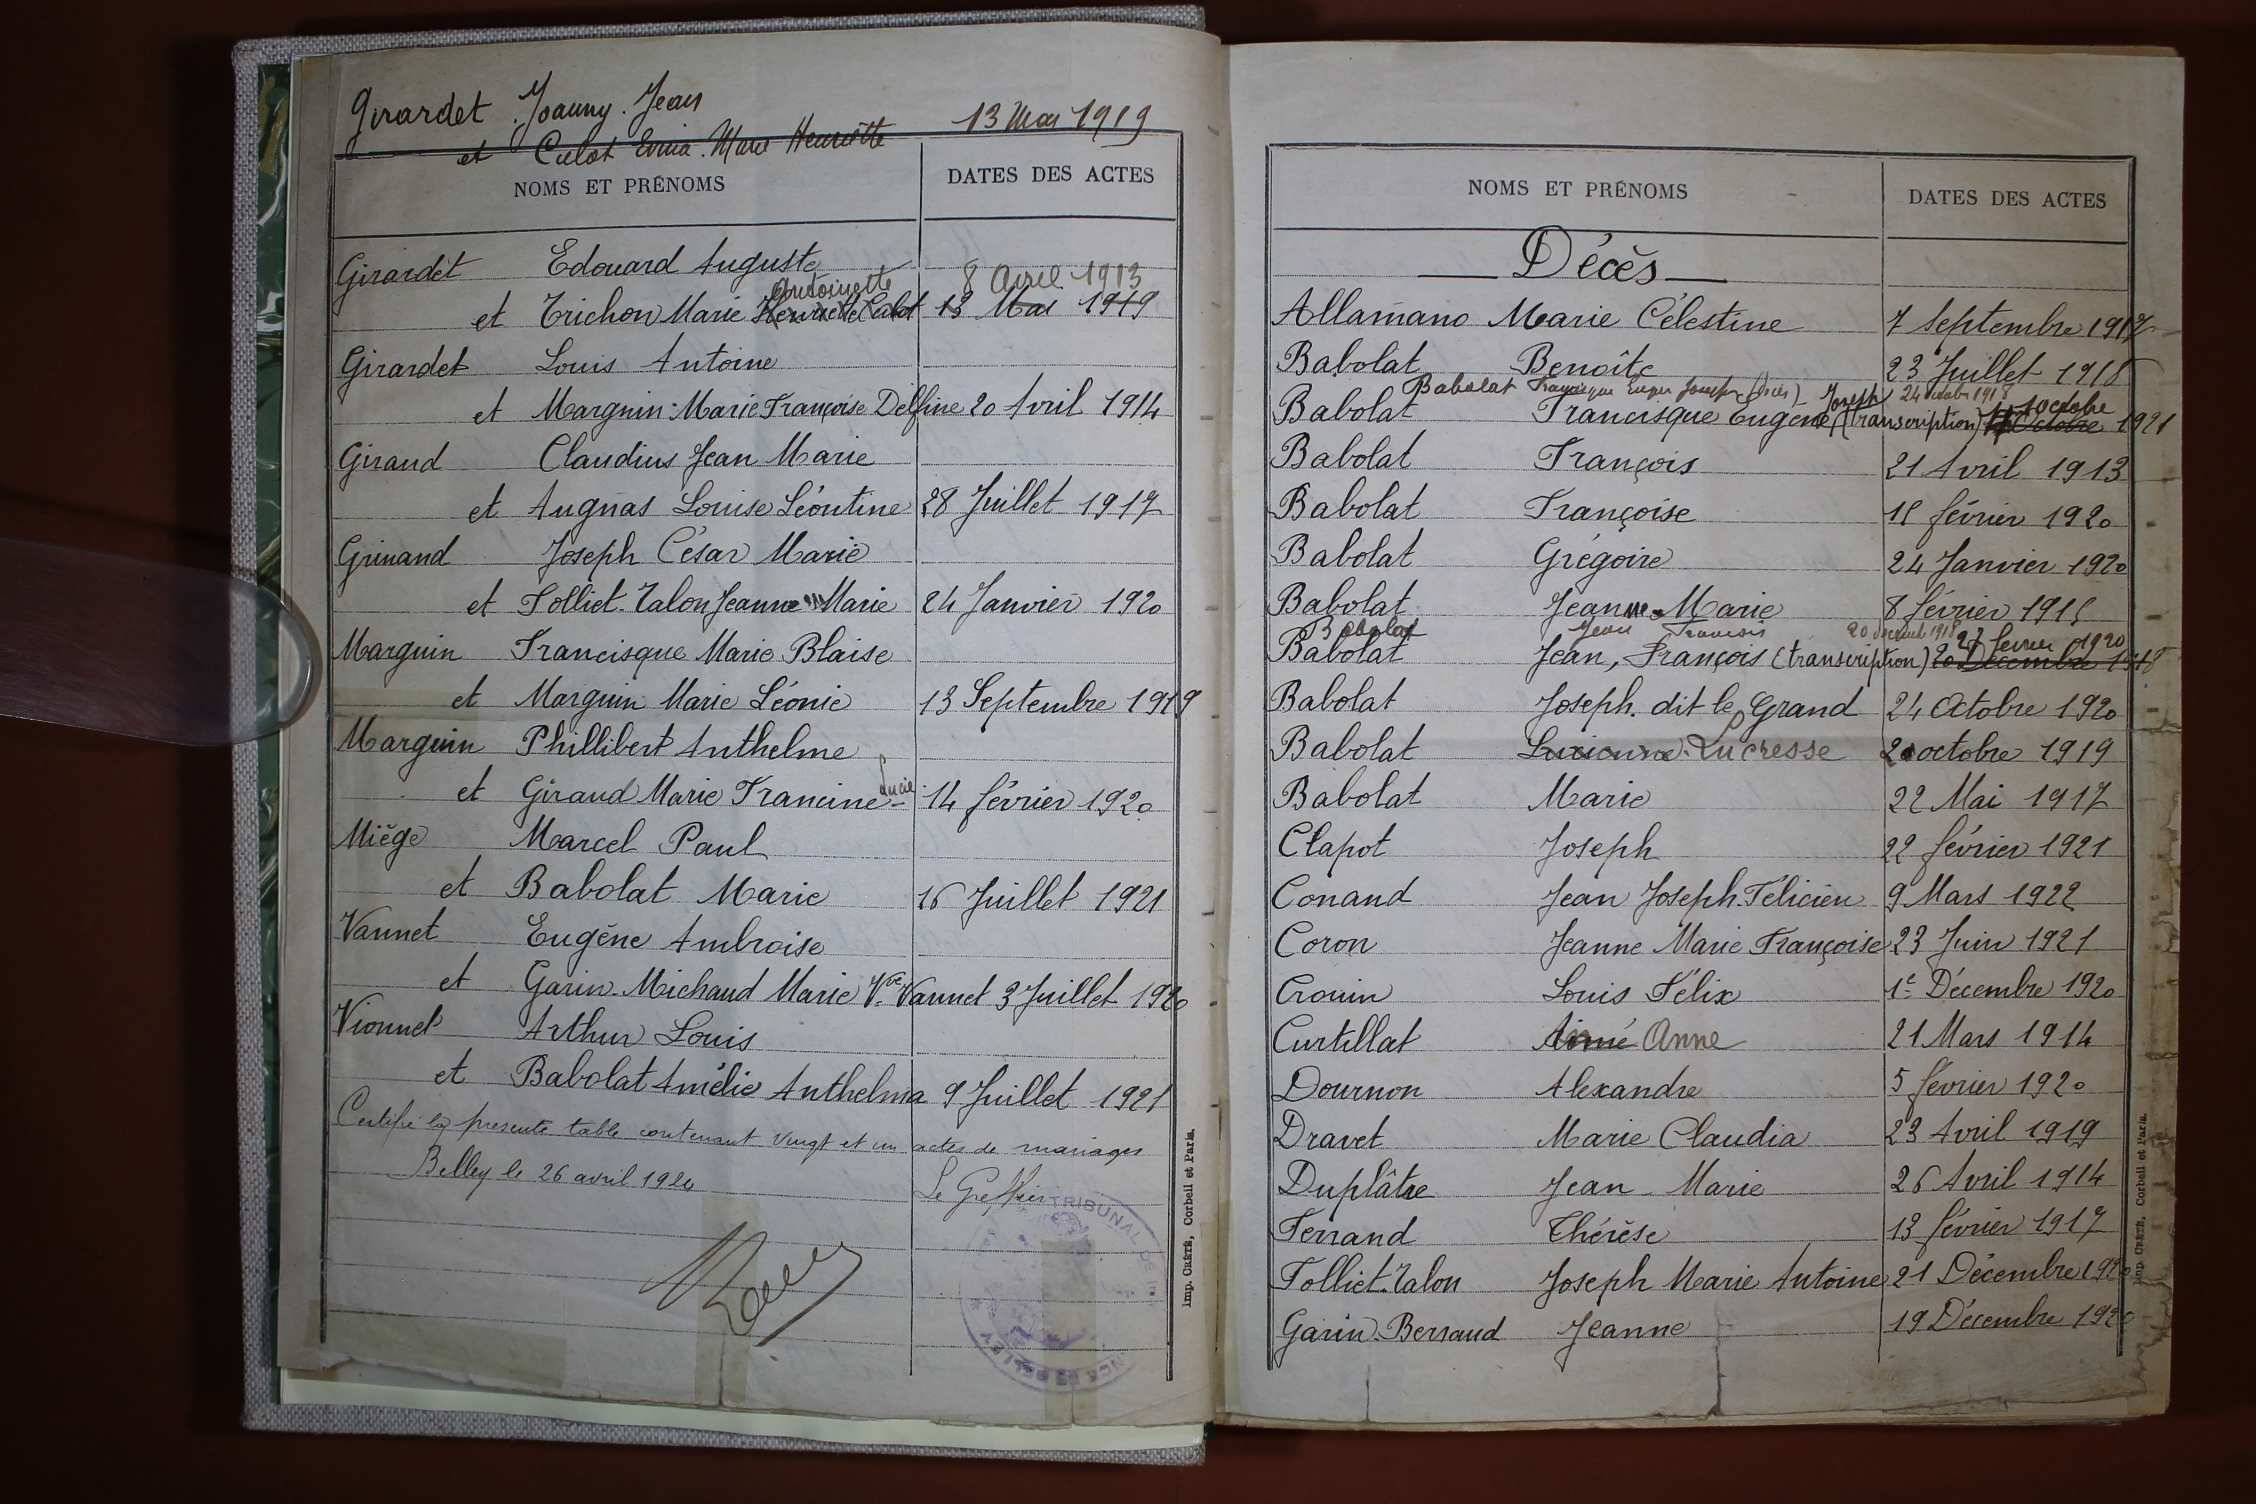 Girardet Joanny Jean 13 Mai 1919
et Culot Marie Henriette
NOMS ET PRÉNOMS DATES DES ACTES
Girardet Edouard Auguste
Antoinette 8 Avril 1913
et Trichon Marie Henriette Culot 13 Mai 1919
Girardet Louis Antoine
et Marguin Marie Françoise Delfine 20 Avril 1914
Giraud Claudius Jean Marie
et Augnas Louise Léontine 28 Juillet 1917
Grinand Joseph César Marie
et Folliet-Talon Jeanne Marie 24 Janvier 1920
Marguin Francisque Marie Blaise
et Marguin Marie Léonie 13 Septembre 1919
Marguin Phillibert Anthelme
et Giraud Marie Francine Lucie 14 février 1920
Miège Marcel Paul
et Babolat Marie 16 Juillet 1921
Vannet Eugène Ambroise
et Garin-Michaud Marie Vve Vannet 3 Juillet 1920
Vionnet Arthur Louis
et Babolat Amélie Anthelma 9 Juillet 1921
Certifié la presente table contenant vingt et un actes de mariages
Belley le 26 avril 1924
Le Greffier
TRIBUNAL DE
Imp. CRÉTÉ, Corbeil et Paris.
NOMS ET PRÉNOMS DATES DES ACTES
Décès
Allamano Marie Célestine 7 Septembre 1917
Babolat Benoîte 23 Juillet 1918
Babolat Francisque Eugene Joseph (Décès) 24 octobre 1918
Babolat Francisque Eugène Joseph (transcription) 11 Octobre 1 octobre 1921
Babolat François 21 Avril 1913
Babolat Françoise 18 février 1920
Babolat Grégoire 24 Janvier 1920
Babolat Jeanne-Marie 8 février 1918
Babolat Jean François 20 decemb 1918
Babolat Jean, François (transcription) 20 Décembre 1918 27 fevrier 1920
Babolat Joseph dit le Grand 24 Octobre 1920
Babolat Lucienne Lucresse 20 octobre 1919
Babolat Marie 22 Mai 1917
Clapot Joseph 22 février 1921
Conand Jean Joseph Félicien 9 Mars 1922
Coron Jeanne Marie Françoise 23 Juin 1921
Crouin Louis Félix 1e Décembre 1920
Curtillat Aimé Anne 21 Mars 1914
Dournon Alexandre 5 février 1920
Dravet Marie Claudia 23 Avril 1919
Duplâtre Jean Marie 26 Avril 1914
Ferrand Thérèse 13 février 1917
Folliet-Talon Joseph Marie Antoine 21 Décembre 1920
Garin-Berraud Jeanne 19 Décembre 1920
Imp. CRÉTÉ, Corbeil et Paris.